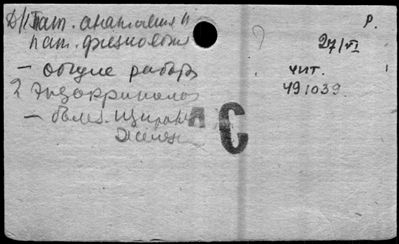 Д/ Пат. анатомия и
пат. физиология
– общие работы
2 Эндокринолог
– болез. щитов.
железы
АС
Р.
27/VI
чит.
491039.